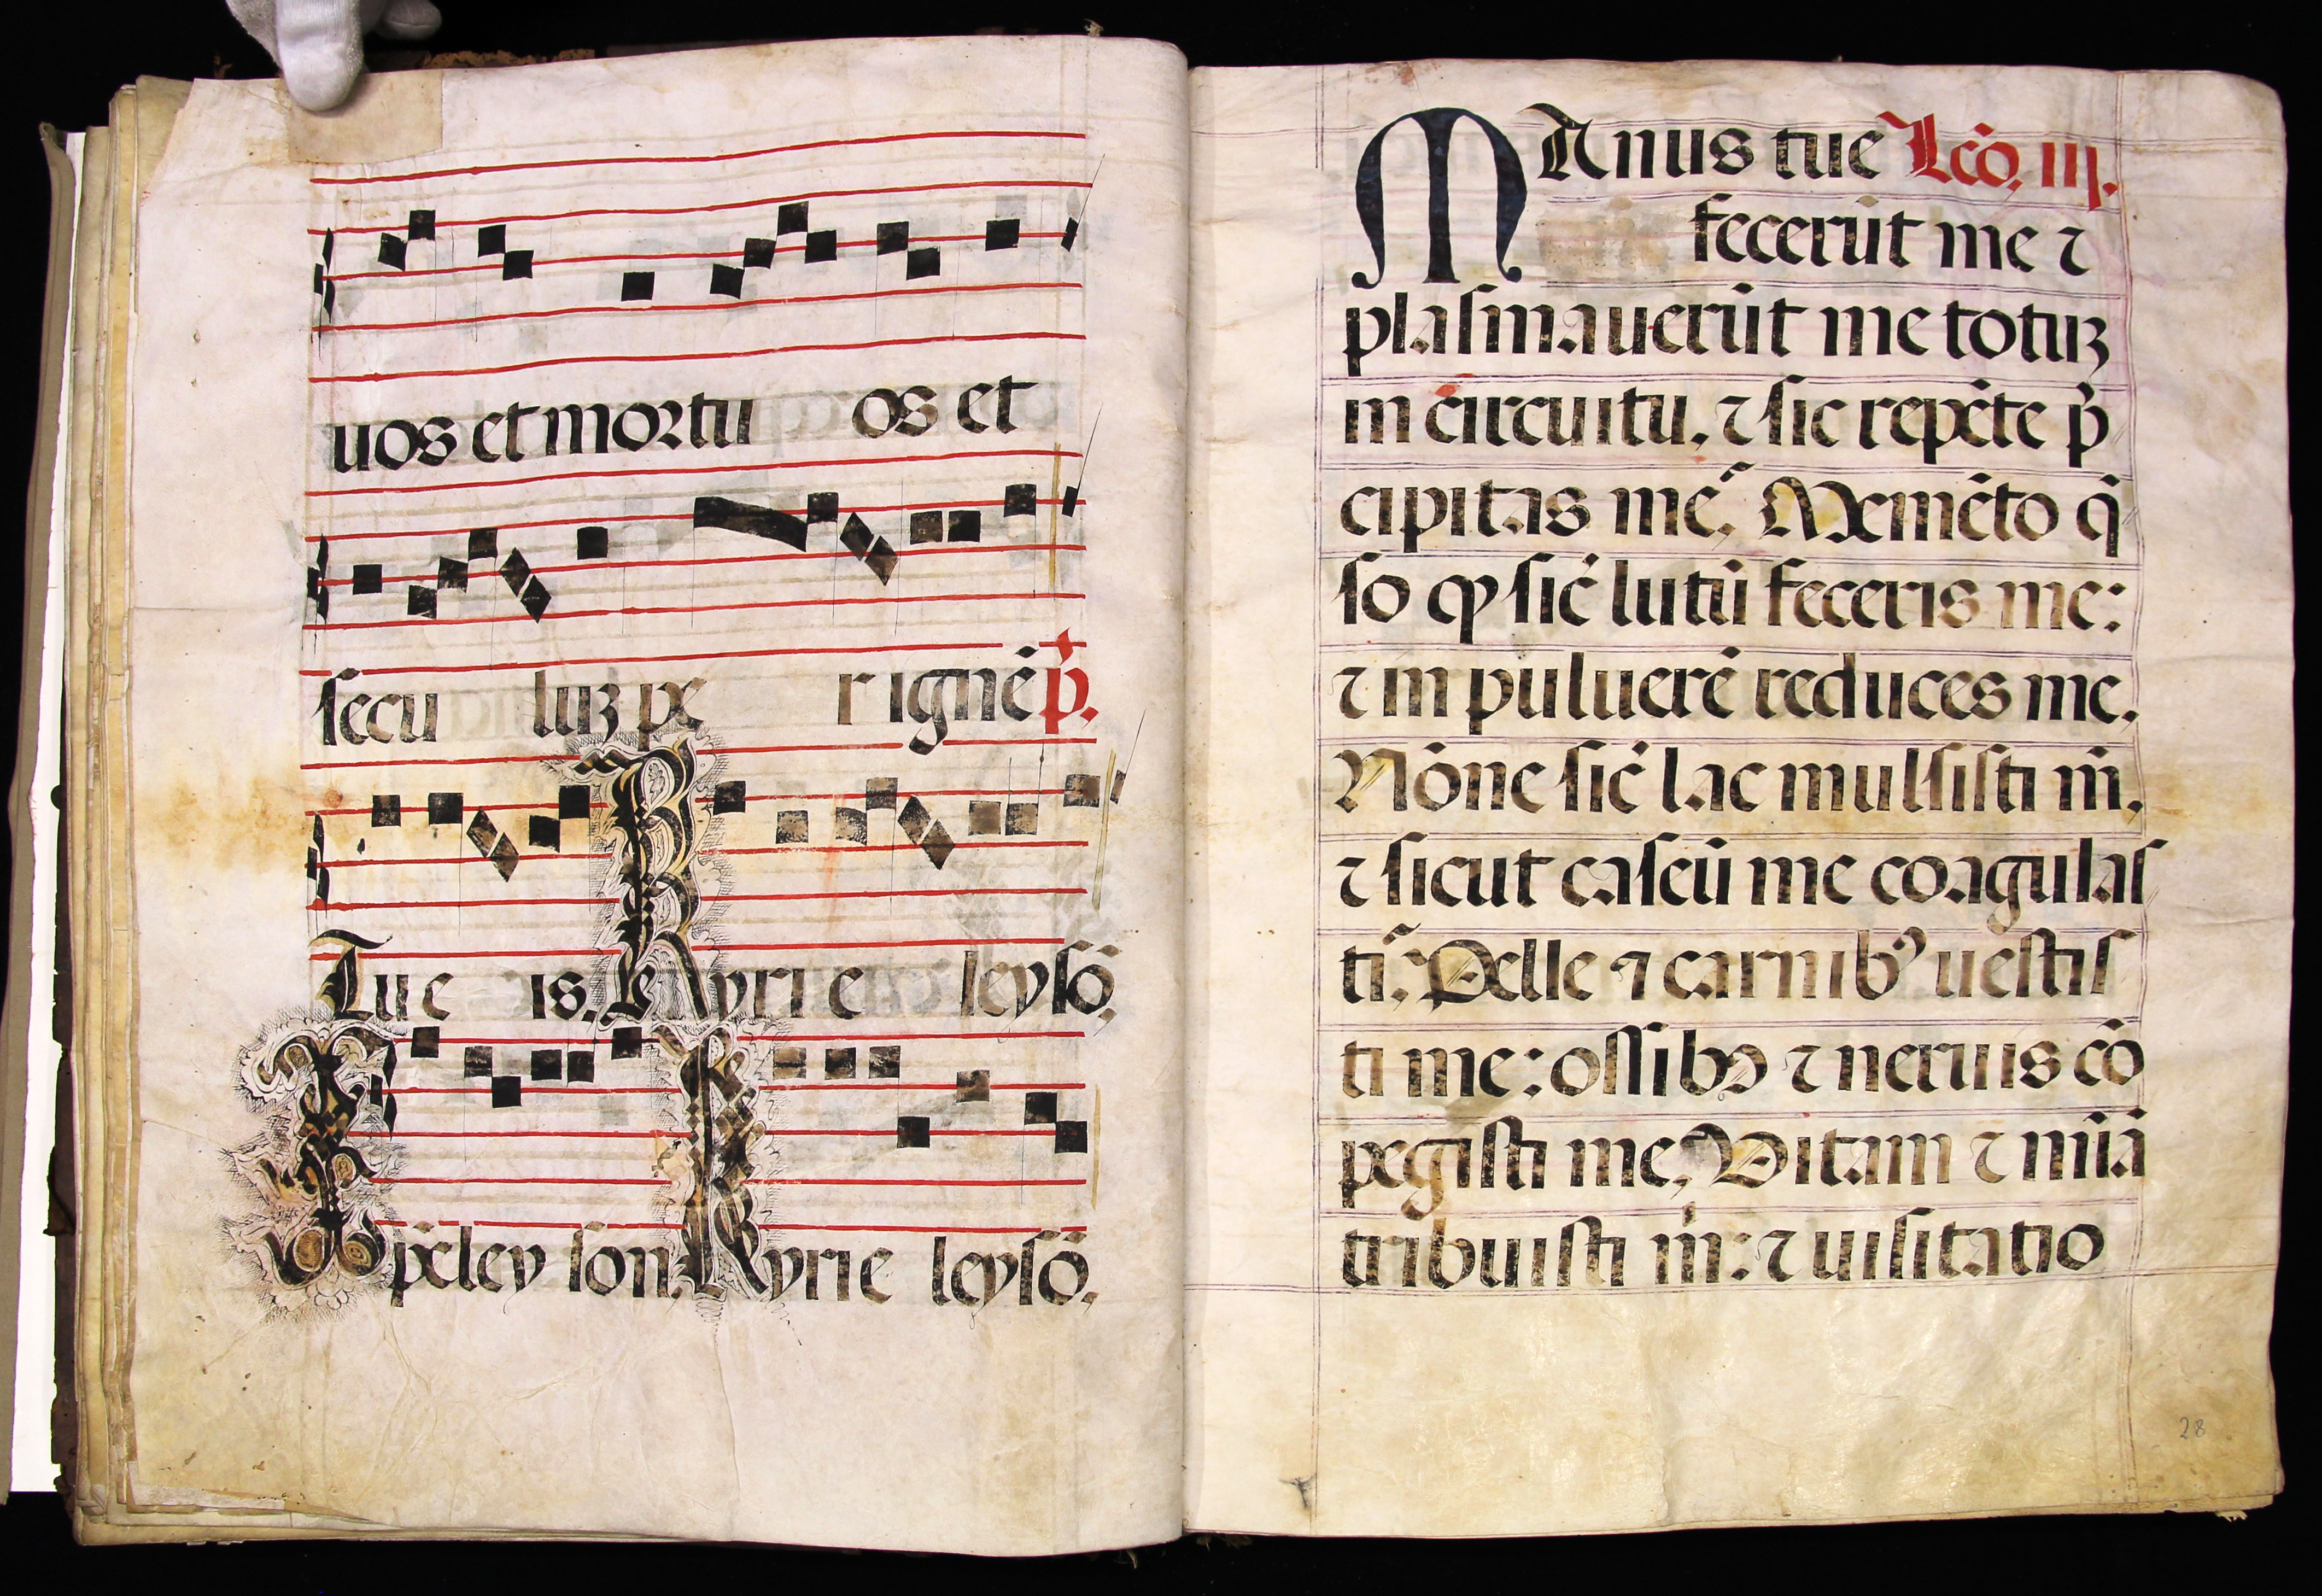 uos et mortu os et
secu luꝫ pe r ignē p̃.
Lu c is. Kyrie leysō.
Xp̄eley son. Kyrie leysō.
MAnus tue Lcō. iij.
fecerūt me ⁊
plasmauerūt me totuꝫ
in circuitu. ⁊ sic repēte p̃
cipitas me. Memēto q̄
so ꝙ sic̄ lutū feceris me:
⁊ in puluerē reduces me.
Nōne sic̄ lac mulsisti m̄.
⁊ sicut caseū me coagulas
ti. Pelle ⁊ carnibꝰ uestis
ti me: ossibꝫ ⁊ neruis cō
pegisti me. Vitam ⁊ mīā
tribuisti m̄: ⁊ uisitatio
28